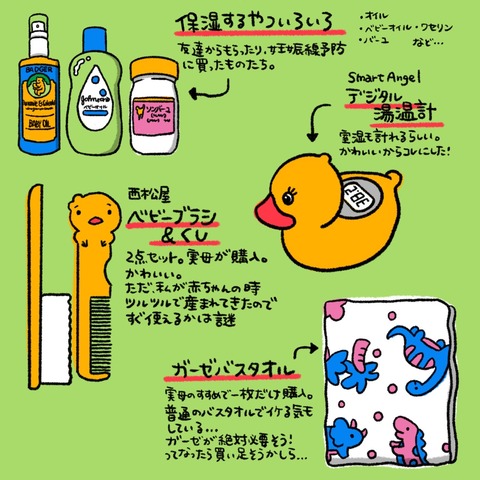 保湿するやついろいろ
友達からもらったり、妊娠線予防
に買ったものたち。
・オイル
・ベビーオイル・ワセリン
・バーユ など…
BADGER
BABY OIL
Johnson's
ベビーオイル
ソンバーユ
Smart Angel
デジタル
湯温計
室温も計れるらしい。
かわいいからコレにした!
西松屋
ベビーブラシ
&くし
2点セット。実母が購入。
かわいい。
ただ、私が赤ちゃんの時
ツルツルで産まれてきたので
すぐ使えるかは謎
ガーゼバスタオル
実母のすすめで一枚だけ購入。
普通のバスタオルでイケる気も
している…
ガーゼが絶対必要そう!
ってなったら買い足そうかしら…